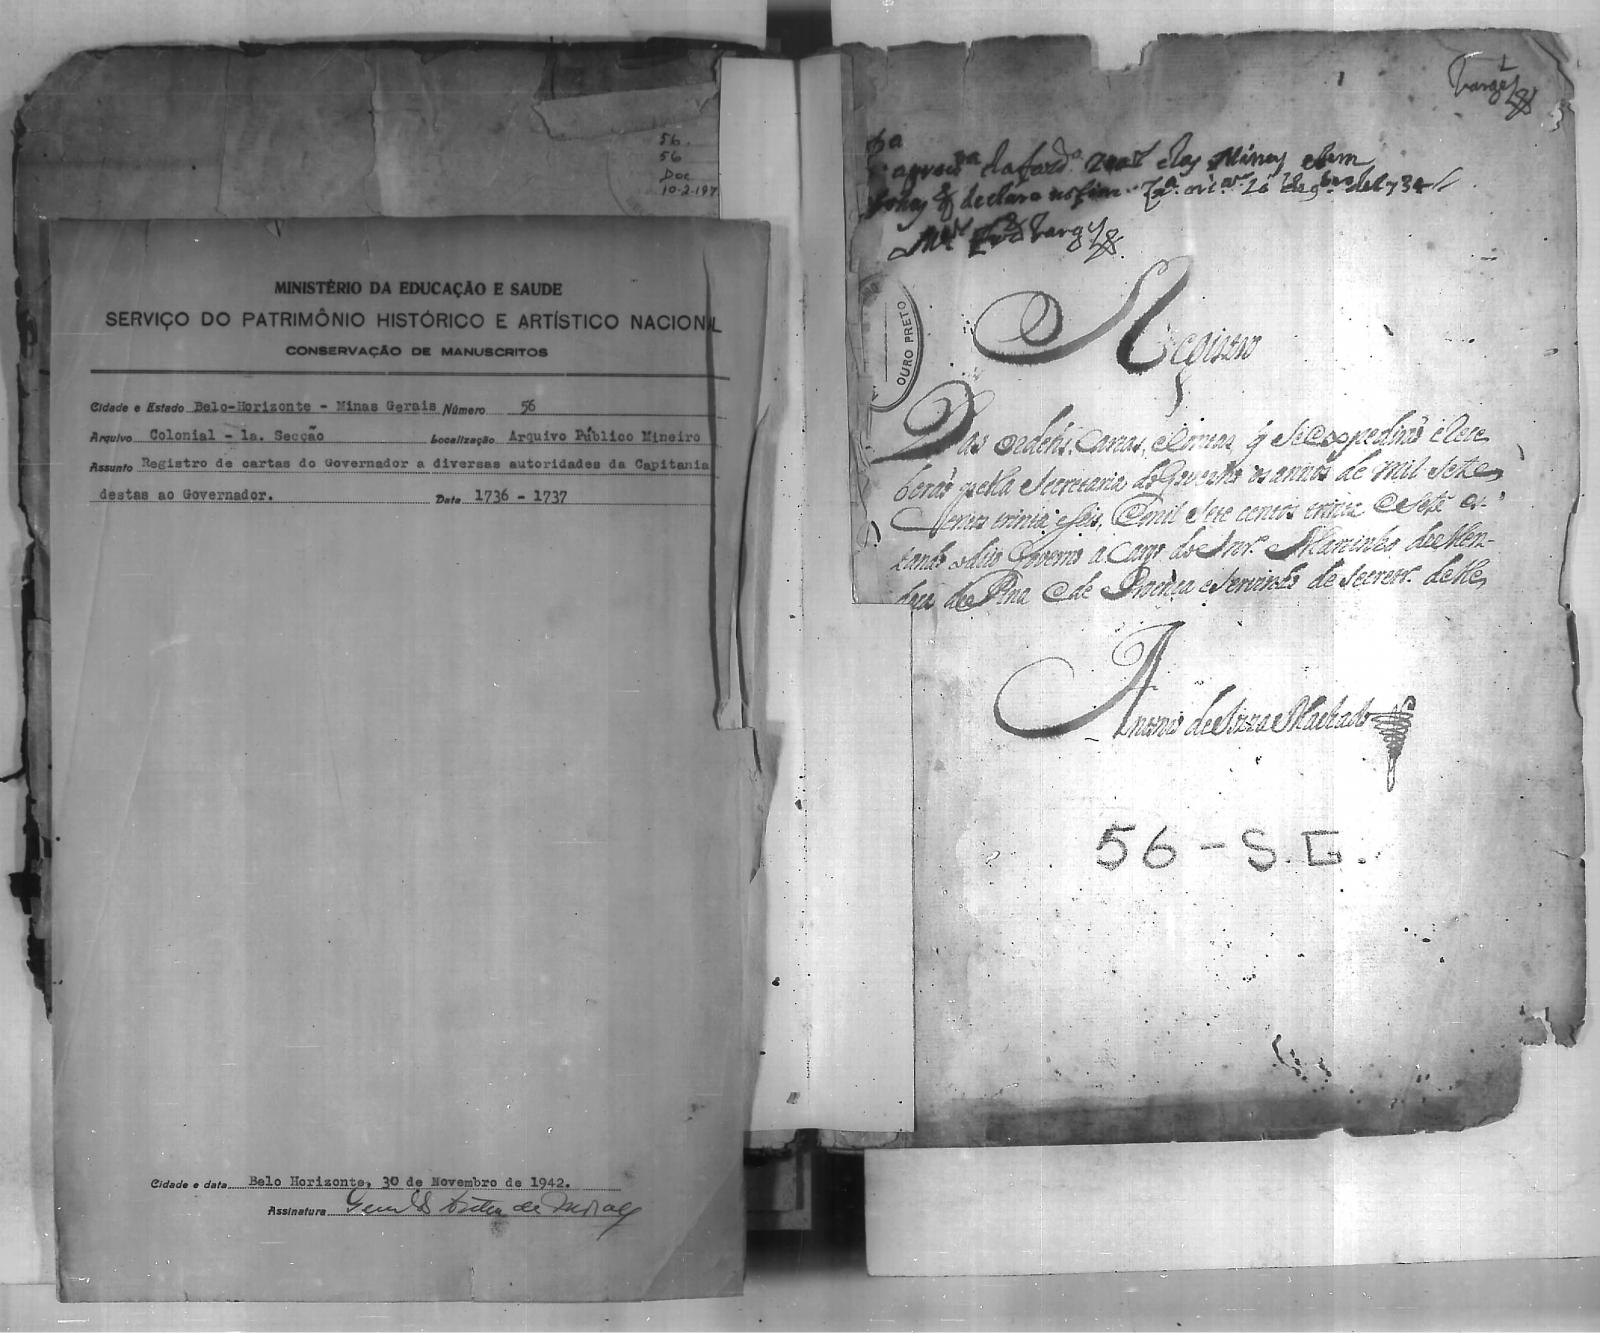 56.
56
Doc
10-2-197
MINISTÉRIO DA EDUCAÇÃO E SAUDE
SERVIÇO DO PATRIMÔNIO HISTÓRICO E ARTÍSTICO NACIONAL
CONSERVAÇÃO DE MANUSCRITOS
Cidade e Estado Belo-Horizonte - Minas Gerais Número 56
Arquivo Colonial - 1a. Secção Localização Arquivo Público Mineiro
Assunto Registro de cartas do Governador a diversas autoridades da Capitania
destas ao Governador. Data 1736 - 1737
Cidade e data Belo Horizonte, 30 de Novembro de 1942.
Assinatura
das Minas
declara no fim
OURO PRETO
Registro
Das ordens, Cartas, q se expedirão e rece
berão pella Secretaria do Governo os annos de mil Sete
centos trinta e Seis, e mil Sete centos trinta e Sete es-
tando o dito Governo a cargo do Martinho de Men-
doça de Pina e de Proença e Servindo de Secretr.º
Antonio de Souza Machado
56 - S.G.